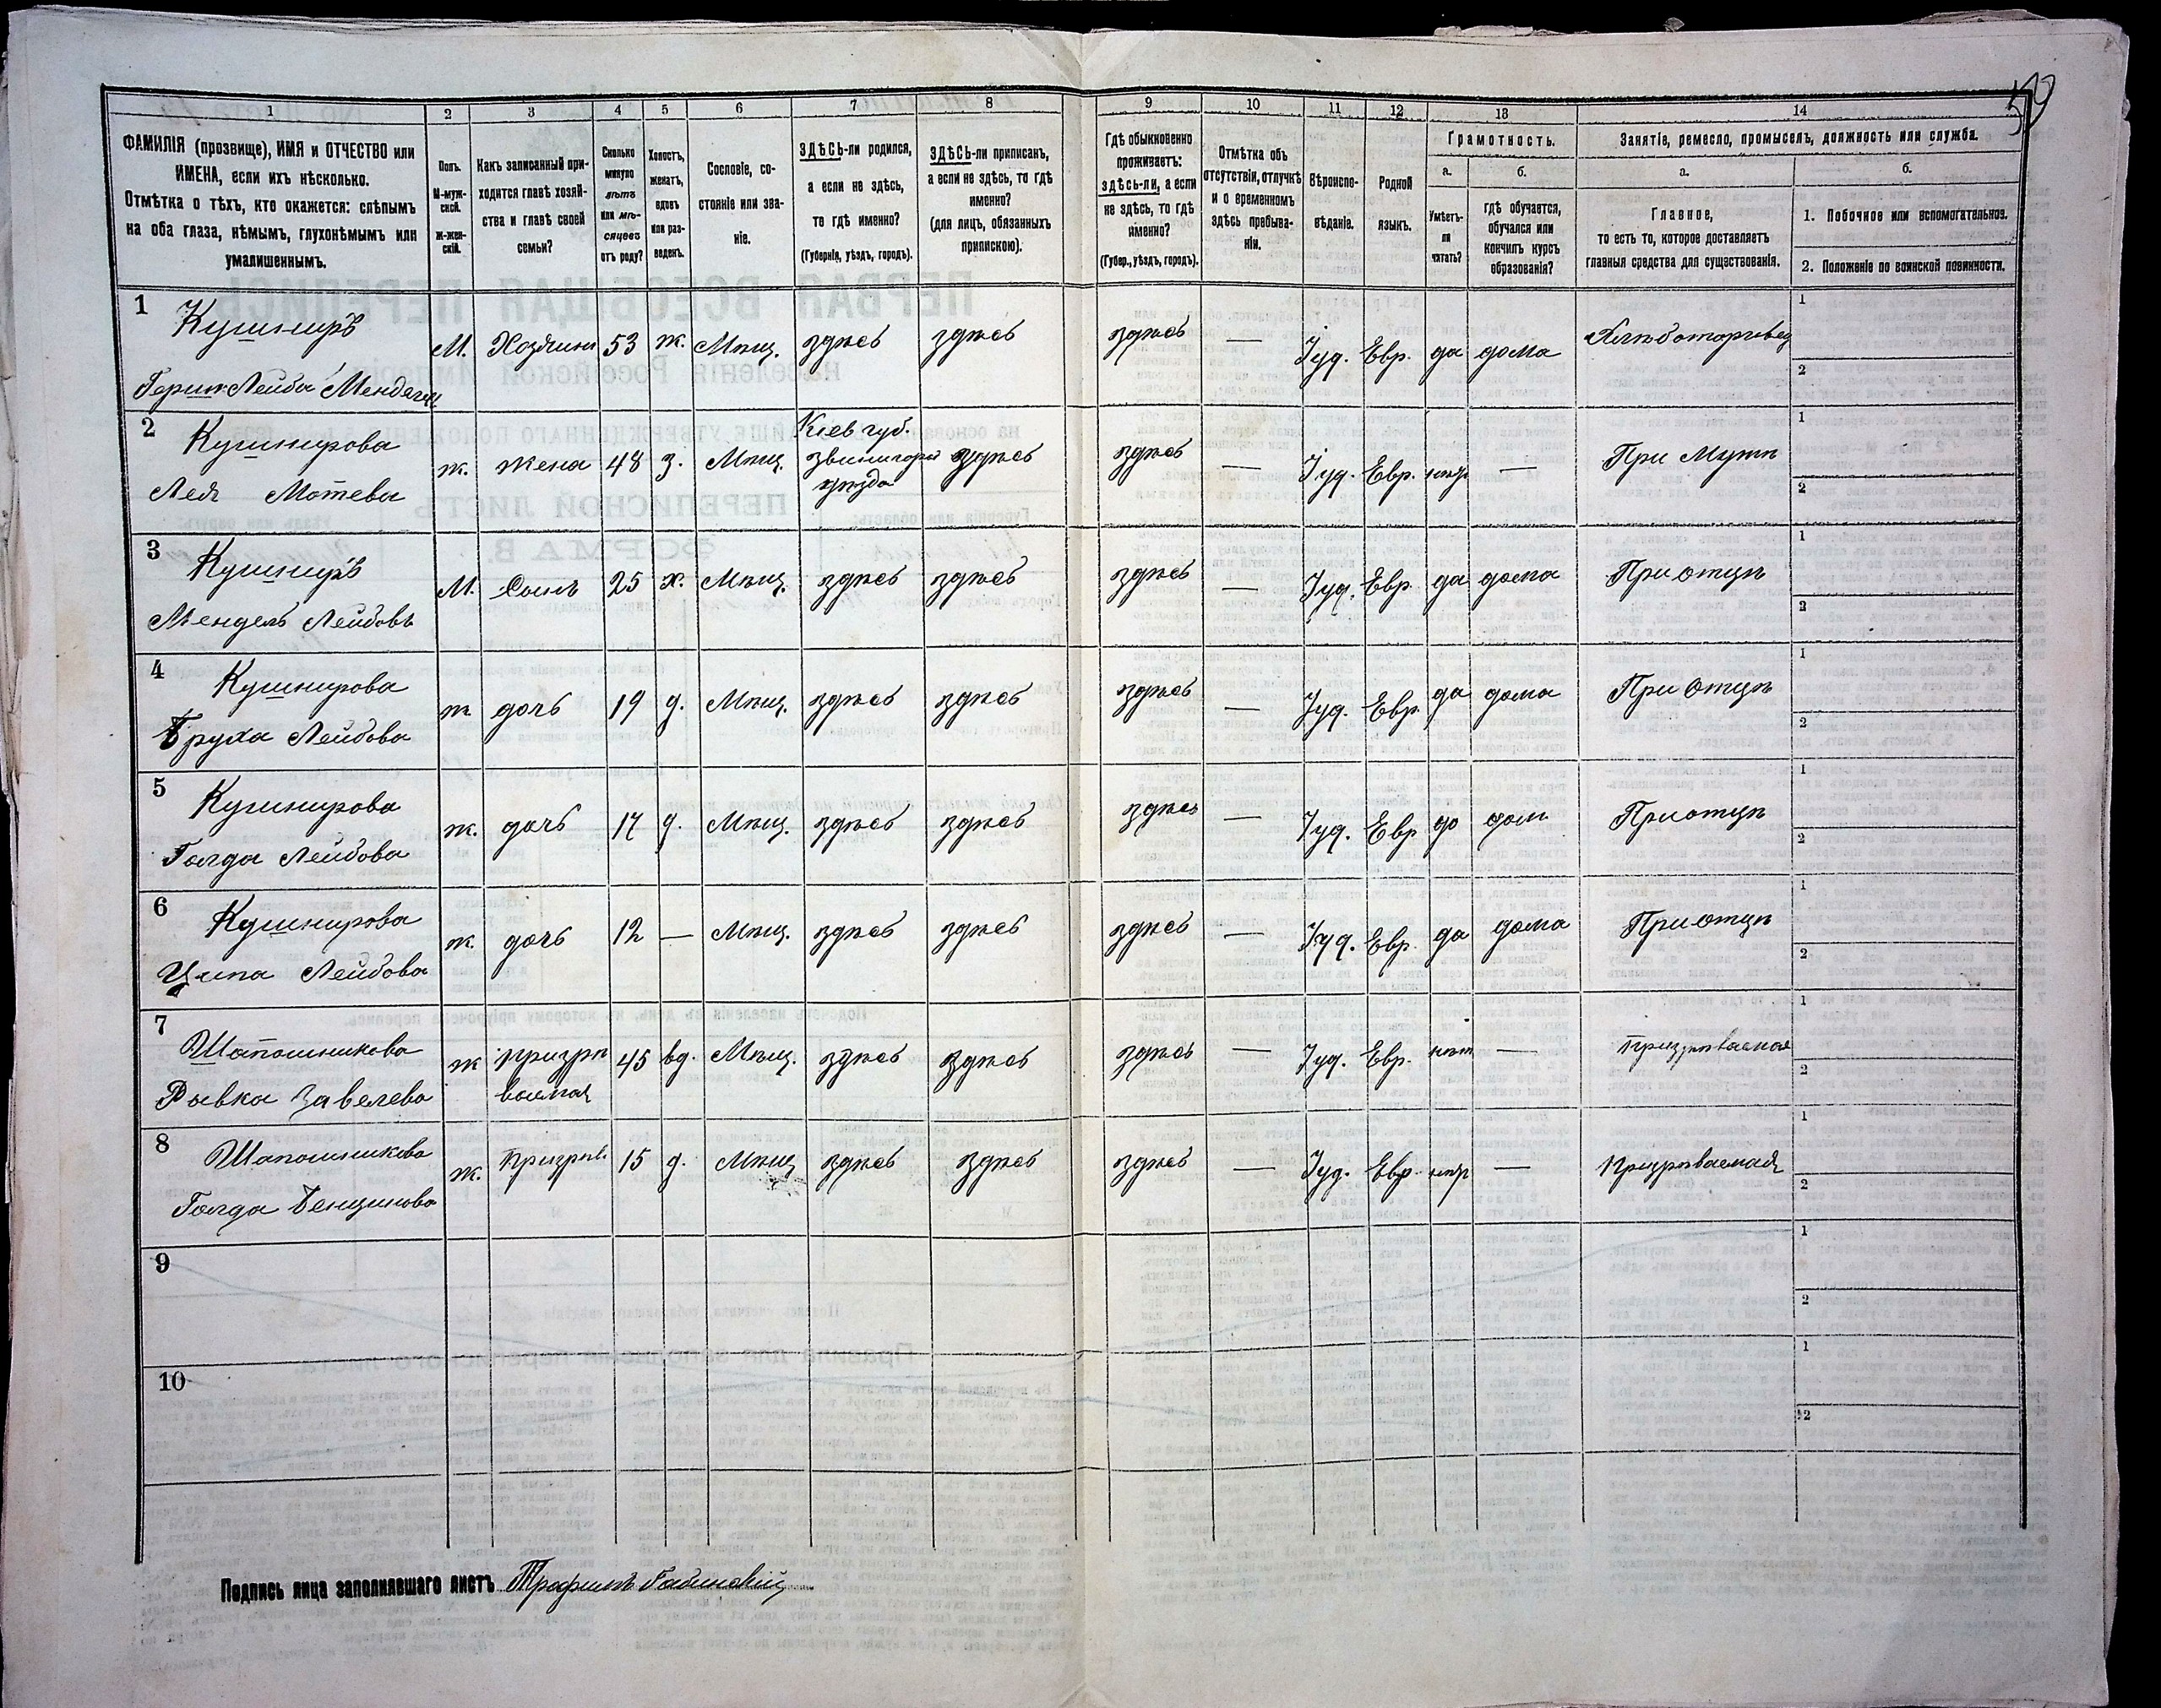 59
1 2 3 4 5 6 7 8 9 10 11 12 13 14
ФАМИЛІЯ (прозвище), ИМЯ и ОТЧЕСТВО или
ИМЕНА, если ихъ нѣсколько.
Отмѣтка о тѣхъ, кто окажется: слѣпымъ
на оба глаза, нѣмымъ, глухонѣмымъ или
умалишеннымъ.
Полъ.
М-муж-
ской.
ж-жен-
скій.
Какъ записанный при-
ходится главѣ хозяй-
ства и главѣ своей
семьи?
Сколько
минуло
лѣтъ
или мѣ-
сяцевъ
отъ роду?
Холостъ,
женатъ,
вдовъ
или раз-
веденъ.
Сословіе, со-
стояніе или зва-
ніе.
ЗДѢСЬ-ли родился,
а если не здѣсь,
то гдѣ именно?
(Губернія, уѣздъ, городъ).
ЗДѢСЬ-ли приписанъ,
а если не здѣсь, то гдѣ
именно?
(для лицъ, обязанныхъ
припискою).
Гдѣ обыкновенно
проживаетъ:
здѣсь-ли, а если
не здѣсь, то гдѣ
именно?
(Губер., уѣздъ, городъ).
Отмѣтка объ
отсутствіи, отлучкѣ
и о временномъ
здѣсь пребыва-
ніи.
Вѣроиспо-
вѣданіе.
Родной
языкъ.
Грамотность.
а.
Умѣетъ-
ли
читать?
б.
гдѣ обучается,
обучался или
кончилъ курсъ
образованія?
Занятіе, ремесло, промыселъ, должность или служба.
а.
Главное,
то есть то, которое доставляетъ
главныя средства для существованія.
б.
1. Побочное или вспомогательное.
2. Положеніе по воинской повинности.
1 Кушниръ
Лейба
М. Хозяинъ 53 ж. Мѣщ. здѣсь здѣсь здѣсь — Іуд. Евр. да дома Хлѣботорговец 1 2
2 Кушнирова
Лея Мотева
ж. жена 48 з. Мѣщ. Кіев губ.
уѣзда
здѣсь здѣсь — Іуд. Евр. нѣт — При Мужѣ 1 2
3 Кушниръ
Мендель Лейбовъ
М. Сынъ 25 х. Мѣщ. здѣсь здѣсь здѣсь — Іуд. Евр. да дома При отцѣ 1 2
4 Кушнирова
Бруха Лейбова
ж дочь 19 д. Мѣщ. здѣсь здѣсь здѣсь — Іуд. Евр. да дома При Отцѣ 1 2
5 Кушнирова
Голда Лейбова
ж. дочь 17 д. Мѣщ. здѣсь здѣсь здѣсь — Іуд. Евр да дома При отцѣ 1 2
6 Кушнирова
Ципа Лейбова
ж. дочь 12 — Мѣщ. здѣсь здѣсь здѣсь — Іуд. Евр. да дома При отцѣ 1 2
7 Шапошникова
Рывка Завелева
ж призрѣ
ваемая
45 вд. Мѣщ. здѣсь здѣсь здѣсь — Іуд. Евр. нѣт — призрѣваемая 1 2
8 Шапошникова
Голда Бенционова
ж. призрѣв. 15 д. Мѣщ здѣсь здѣсь здѣсь — Іуд. Евр. нѣт — призрѣваемая 1 2
9 1 2
10 1 2
Подпись лица заполнявшаго листъ Трофимъ